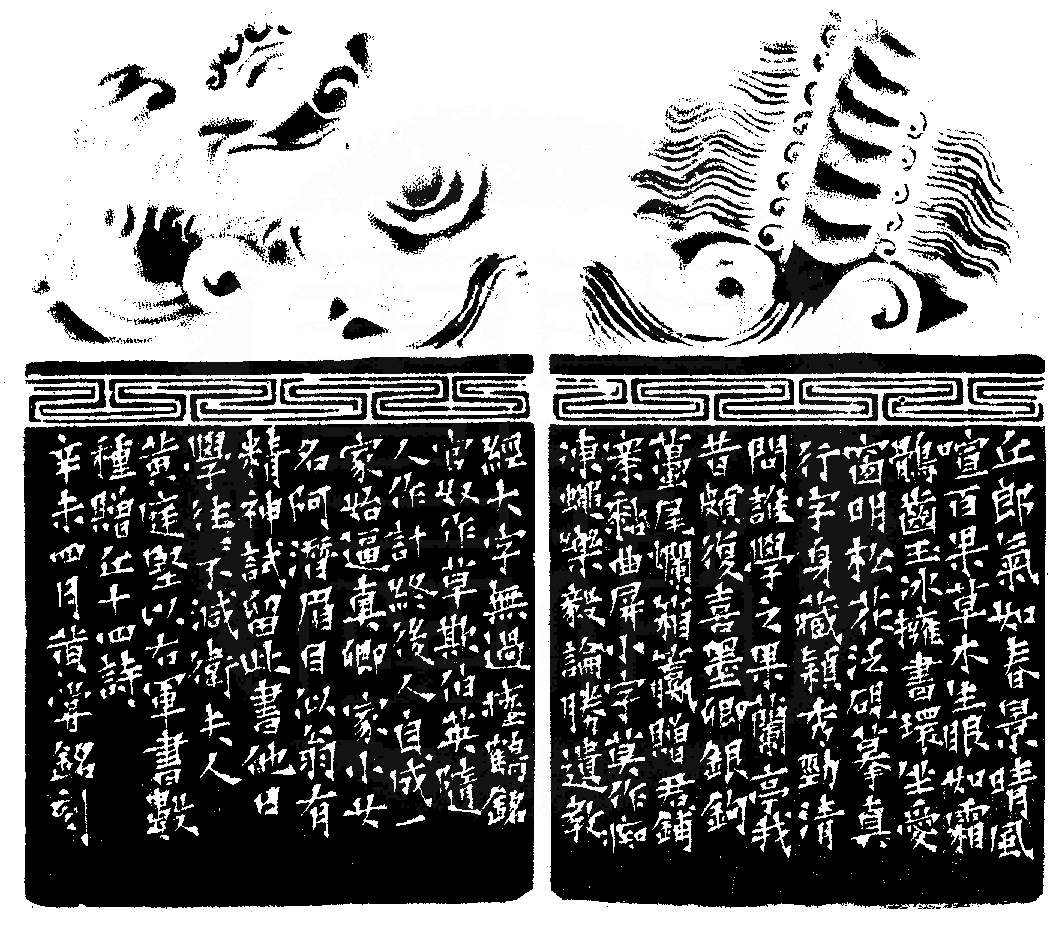 丘郎氣如春景晴風
喧百果草木生眼如霜
鶻齒玉冰擁書環坐愛
窗明松花泛硯摹真
行字身藏穎秀勁清
問誰學之果蘭亭我
昔頗復喜墨卿銀鉤
蠆尾爛箱籯贈君鋪
案黏曲屏小字莫作痴
凍蠅樂毅論勝遺教
經大字無過瘞鶴銘
官奴作草欺伯英隨
人作計終後人自成一
家始逼真卿家小女
名阿潛眉目似翁有
精神試留此書他日
學往〻不減衛夫人
黃庭堅以右軍書數
種贈丘十四詩
辛未四月銘刻